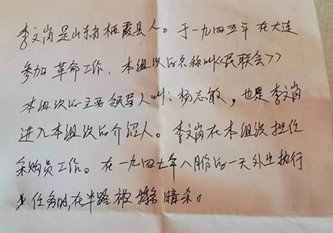 李文岗是山东省栖霞县人。于一九四五年在大连
参加革命工作，本组织的名称叫《民联会》
本组织的主要领导人叫：杨志敏，也是李文岗
进入本组织的介绍人。李文岗在本组织担任
采购员工作。在一九四七年八月份的一天外出执行
任务时，在半路被 暗杀。